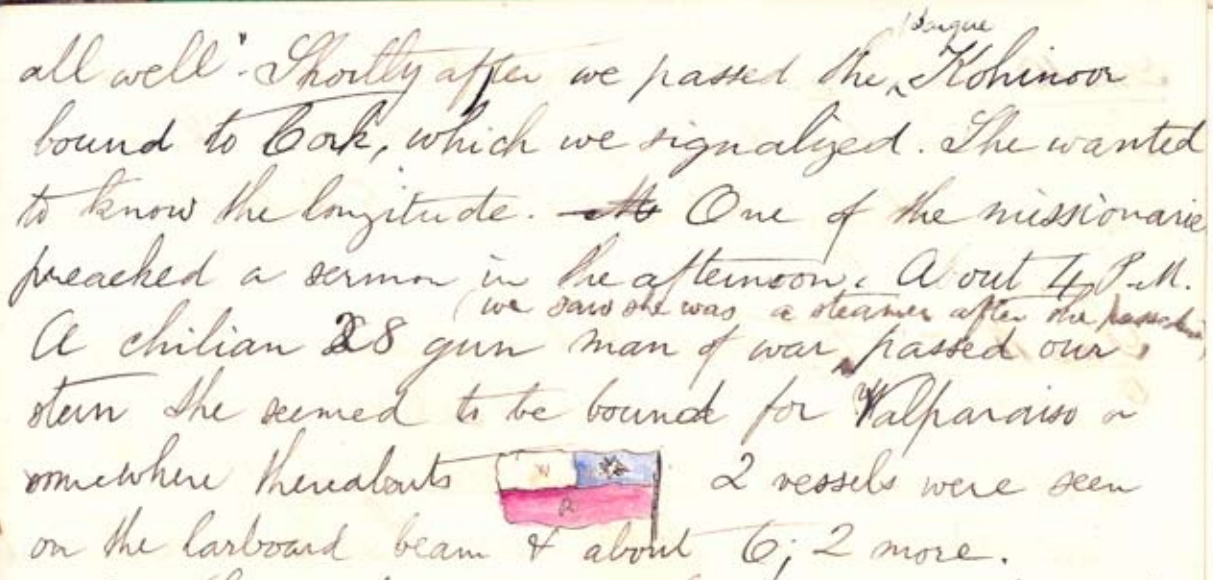 Barque
all well". Shortly after we passed the ‸ Kohinoor
bound to Cork, which we signalized. She wanted
to know the longitude. One of the missionarie
preached a sermon in the afternoon. About 4 P.M.
(we saw she was a steamer after she
A chilian 28 gun man of war passed our
stern she seemed to be bound for Valparaiso or
somewhere thereabouts W R 2 vessels were seen
on the larboard beam & about 6; 2 more.